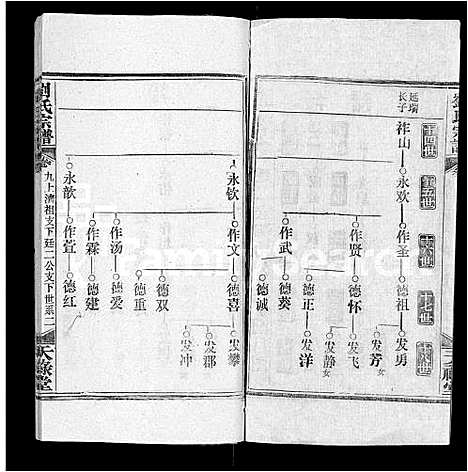 延瑞
长子
十四世
十五世
十六世
十七世
十八世
祚山
永欢
作圣
德祖
发勇
发芳 女
作贤
德怀
发飞
发静 女
德正
发洋
作武
德葵
德诚
永钦
作文
德喜
发攀
发郡
发冲
德双
德重
作汤
德爱
作霖
德建
永歆
作萱
德红
刘氏宗谱
卷九上濟祖支下廷二公支下世系二
天祿堂